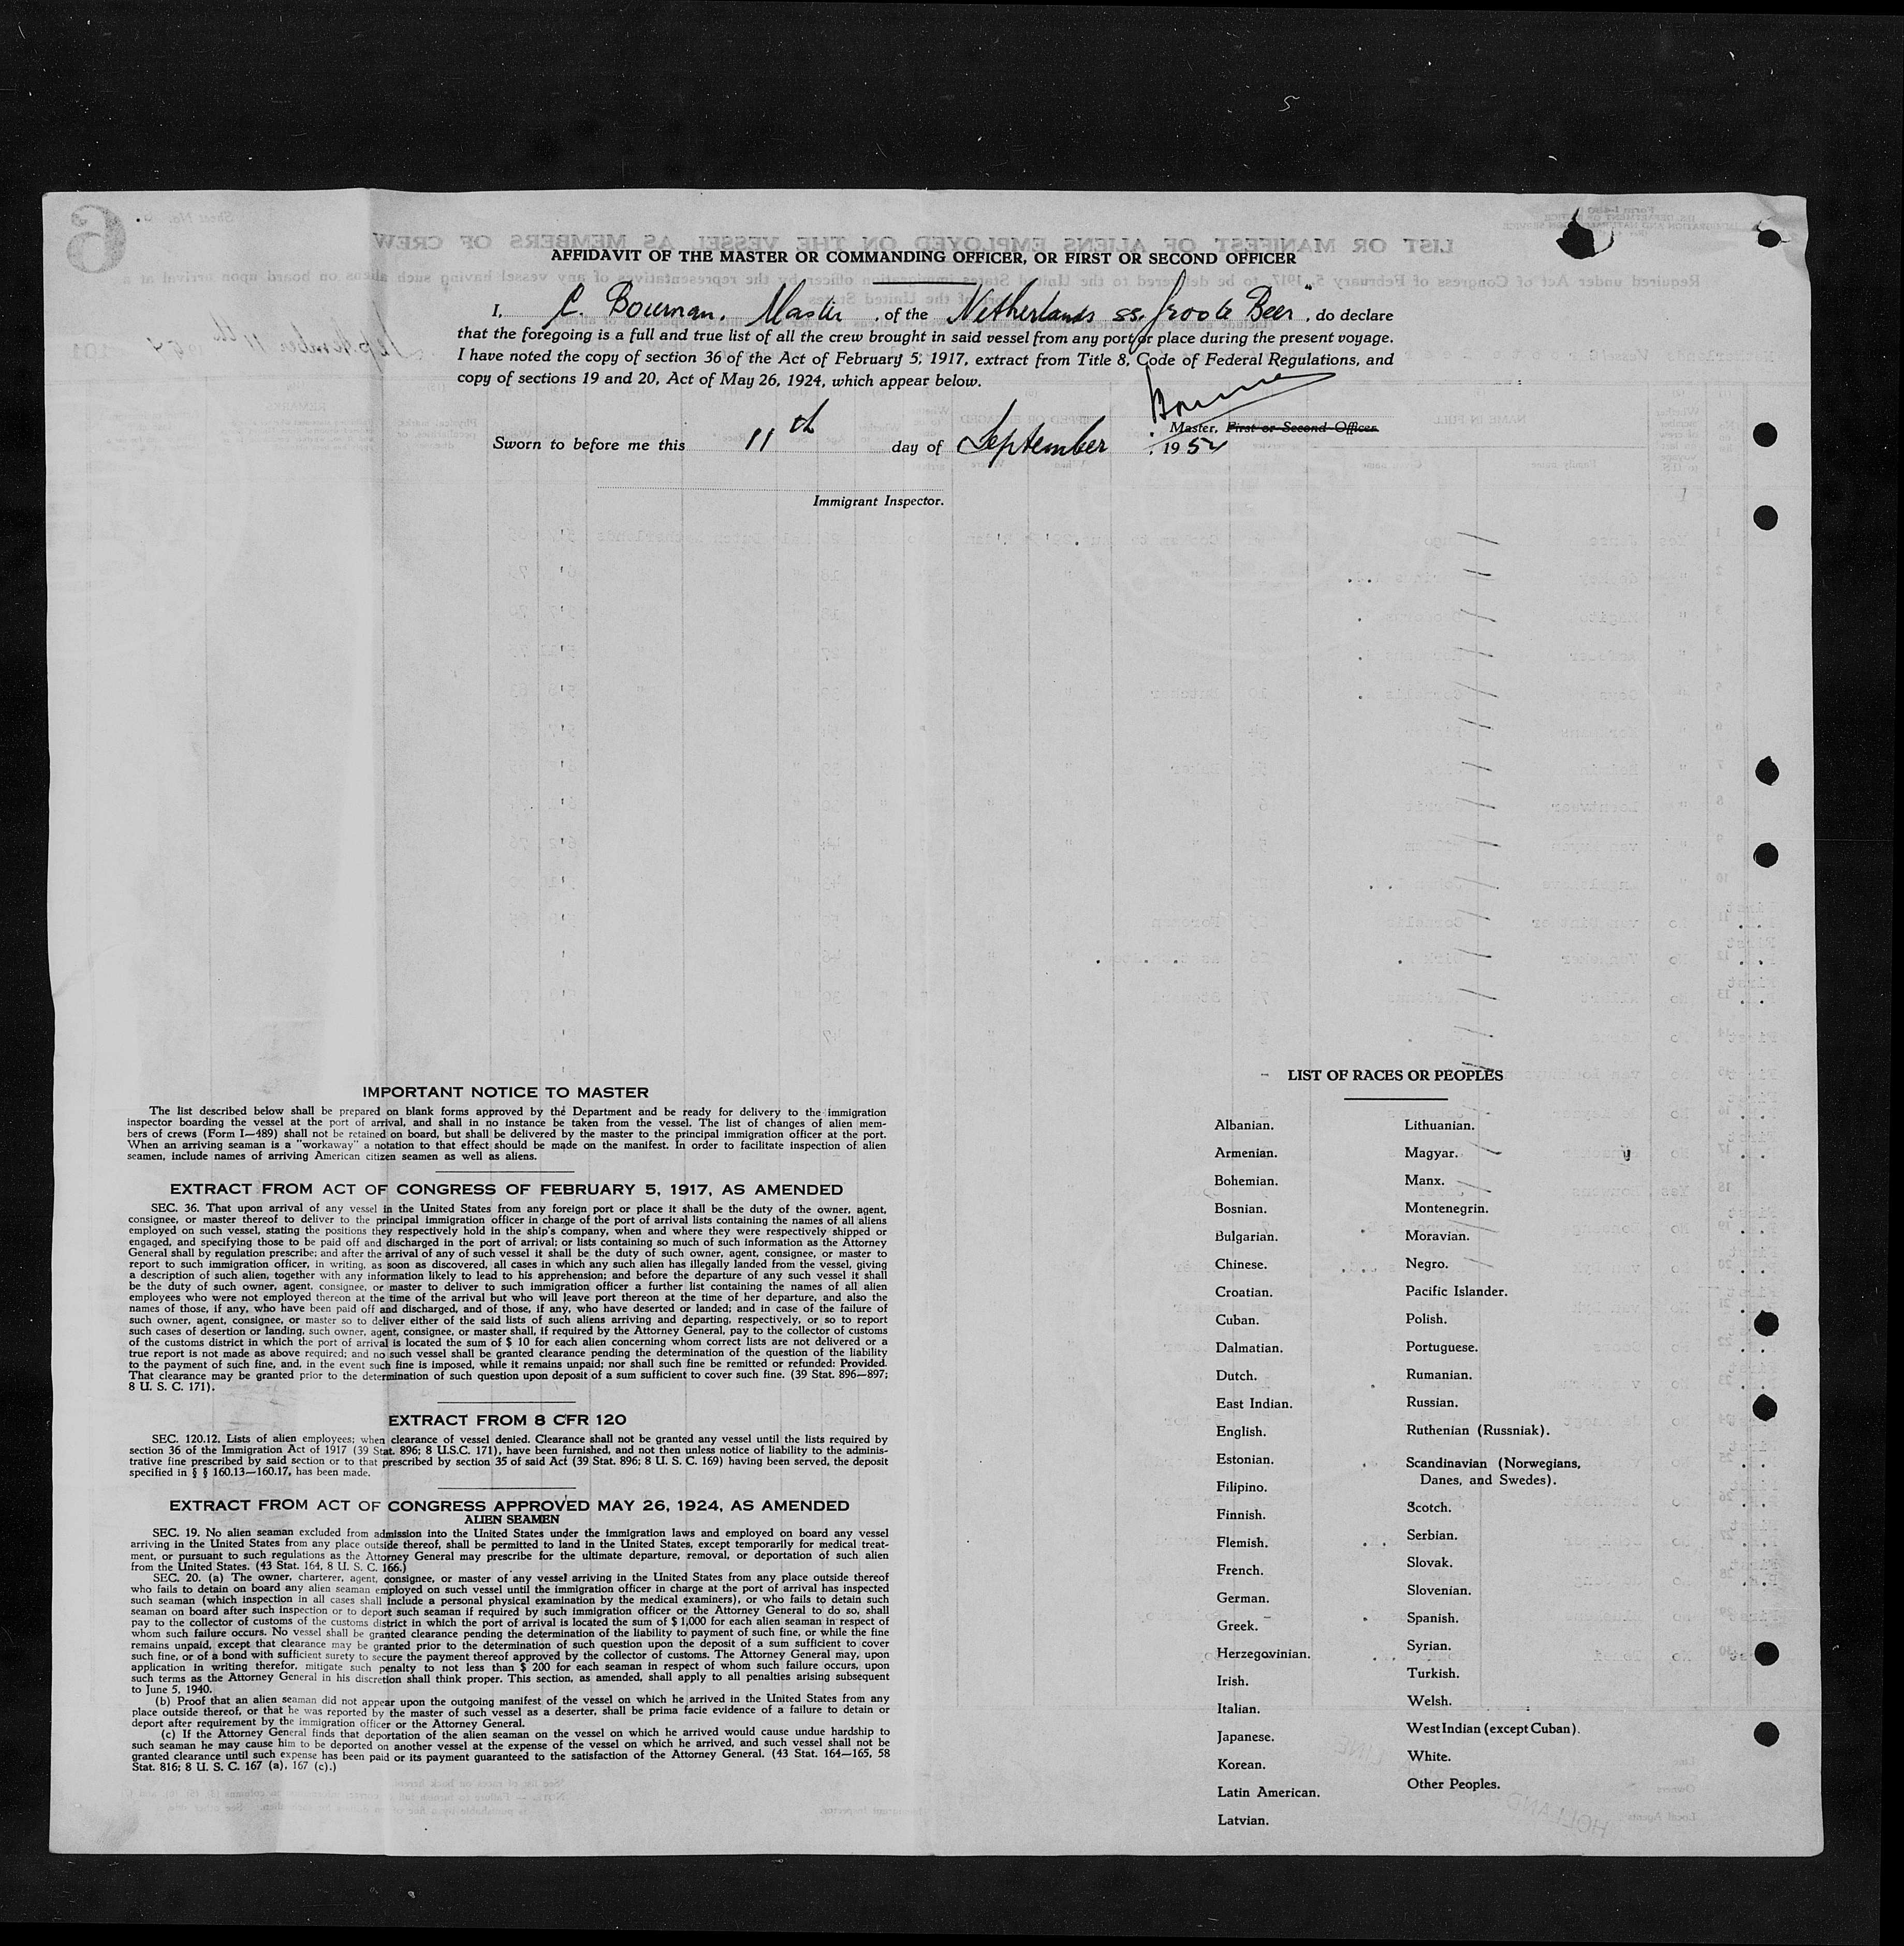 5
AFFIDAVIT OF THE MASTER OR COMMANDING OFFICER, OR FIRST OR SECOND OFFICER
I, C. Bouman, Master, of the Netherlands ss. Groote Beer", do declare
that the foregoing is a full and true list of all the crew brought in said vessel from any port or place during the present voyage.
I have noted the copy of section 36 of the Act of February 5, 1917, extract from Title 8, Code of Federal Regulations, and
copy of sections 19 and 20, Act of May 26, 1924, which appear below.
Master, First or Second Officer.
Sworn to before me this 11th day of September, 1952
Immigrant Inspector.
IMPORTANT NOTICE TO MASTER
The list described below shall be prepared on blank forms approved by the Department and be ready for delivery to the immigration
inspector boarding the vessel at the port of arrival, and shall in no instance be taken from the vessel. The list of changes of alien mem-
bers of crews (Form I—489) shall not be retained on board, but shall be delivered by the master to the principal immigration officer at the port.
When an arriving seaman is a "workaway" a notation to that effect should be made on the manifest. In order to facilitate inspection of alien
seamen, include names of arriving American citizen seamen as well as aliens.
EXTRACT FROM ACT OF CONGRESS OF FEBRUARY 5, 1917, AS AMENDED
SEC. 36. That upon arrival of any vessel in the United States from any foreign port or place it shall be the duty of the owner, agent,
consignee, or master thereof to deliver to the principal immigration officer in charge of the port of arrival lists containing the names of all aliens
employed on such vessel, stating the positions they respectively hold in the ship's company, when and where they were respectively shipped or
engaged, and specifying those to be paid off and discharged in the port of arrival; or lists containing so much of such information as the Attorney
General shall by regulation prescribe; and after the arrival of any of such vessel it shall be the duty of such owner, agent, consignee, or master to
report to such immigration officer, in writing, as soon as discovered, all cases in which any such alien has illegally landed from the vessel, giving
a description of such alien, together with any information likely to lead to his apprehension; and before the departure of any such vessel it shall
be the duty of such owner, agent, consignee, or master to deliver to such immigration officer a further list containing the names of all alien
employees who were not employed thereon at the time of the arrival but who will leave port thereon at the time of her departure, and also the
names of those, if any, who have been paid off and discharged, and of those, if any, who have deserted or landed; and in case of the failure of
such owner, agent, consignee, or master so to deliver either of the said lists of such aliens arriving and departing, respectively, or so to report
such cases of desertion or landing, such owner, agent, consignee, or master shall, if required by the Attorney General, pay to the collector of customs
of the customs district in which the port of arrival is located the sum of $ 10 for each alien concerning whom correct lists are not delivered or a
true report is not made as above required; and no such vessel shall be granted clearance pending the determination of the question of the liability
to the payment of such fine, and, in the event such fine is imposed, while it remains unpaid; nor shall such fine be remitted or refunded: Provided.
That clearance may be granted prior to the determination of such question upon deposit of a sum sufficient to cover such fine. (39 Stat. 896—897;
8 U. S. C. 171).
EXTRACT FROM 8 CFR 120
SEC. 120.12. Lists of alien employees; when clearance of vessel denied. Clearance shall not be granted any vessel until the lists required by
section 36 of the Immigration Act of 1917 (39 Stat. 896; 8 U.S.C. 171), have been furnished, and not then unless notice of liability to the adminis-
trative fine prescribed by said section or to that prescribed by section 35 of said Act (39 Stat. 896; 8 U. S. C. 169) having been served, the deposit
specified in § § 160.13—160.17, has been made.
EXTRACT FROM ACT OF CONGRESS APPROVED MAY 26, 1924, AS AMENDED
ALIEN SEAMEN
SEC. 19. No alien seaman excluded from admission into the United States under the immigration laws and employed on board any vessel
arriving in the United States from any place outside thereof, shall be permitted to land in the United States, except temporarily for medical treat-
ment, or pursuant to such regulations as the Attorney General may prescribe for the ultimate departure, removal, or deportation of such alien
from the United States. (43 Stat. 164, 8 U. S. C. 166.)
SEC. 20. (a) The owner, charterer, agent, consignee, or master of any vessel arriving in the United States from any place outside thereof
who fails to detain on board any alien seaman employed on such vessel until the immigration officer in charge at the port of arrival has inspected
such seaman (which inspection in all cases shall include a personal physical examination by the medical examiners), or who fails to detain such
seaman on board after such inspection or to deport such seaman if required by such immigration officer or the Attorney General to do so, shall
pay to the collector of customs of the customs district in which the port of arrival is located the sum of $ 1,000 for each alien seaman in respect of
whom such failure occurs. No vessel shall be granted clearance pending the determination of the liability to payment of such fine, or while the fine
remains unpaid, except that clearance may be granted prior to the determination of such question upon the deposit of a sum sufficient to cover
such fine, or of a bond with sufficient surety to secure the payment thereof approved by the collector of customs. The Attorney General may, upon
application in writing therefor, mitigate such penalty to not less than $ 200 for each seaman in respect of whom such failure occurs, upon
such terms as the Attorney General in his discretion shall think proper. This section, as amended, shall apply to all penalties arising subsequent
to June 5, 1940.
(b) Proof that an alien seaman did not appear upon the outgoing manifest of the vessel on which he arrived in the United States from any
place outside thereof, or that he was reported by the master of such vessel as a deserter, shall be prima facie evidence of a failure to detain or
deport after requirement by the immigration officer or the Attorney General.
(c) If the Attorney General finds that deportation of the alien seaman on the vessel on which he arrived would cause undue hardship to
such seaman he may cause him to be deported on another vessel at the expense of the vessel on which he arrived, and such vessel shall not be
granted clearance until such expense has been paid or its payment guaranteed to the satisfaction of the Attorney General. (43 Stat. 164—165, 58
Stat. 816; 8 U. S. C. 167 (a), 167 (c).)
LIST OF RACES OR PEOPLES
Albanian.
Armenian.
Bohemian.
Bosnian.
Bulgarian.
Chinese.
Croatian.
Cuban.
Dalmatian.
Dutch.
East Indian.
English.
Estonian.
Filipino.
Finnish.
Flemish.
French.
German.
Greek.
Herzegovinian.
Irish.
Italian.
Japanese.
Korean.
Latin American.
Latvian.
Lithuanian.
Magyar.
Manx.
Montenegrin.
Moravian.
Negro.
Pacific Islander.
Polish.
Portuguese.
Rumanian.
Russian.
Ruthenian (Russniak).
Scandinavian (Norwegians,
Danes, and Swedes).
Scotch.
Serbian.
Slovak.
Slovenian.
Spanish.
Syrian.
Turkish.
Welsh.
West Indian (except Cuban).
White.
Other Peoples.